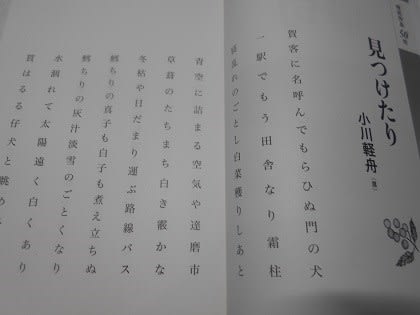 50句
見つけたり
小川軽舟[鷹]
賀客に名呼んでもらひぬ門の犬
一駅でもう田舎なり霜柱
乱れのごとし白菜穫りしあと
青空に詰まる空気や達磨市
草葺のたちまち白き霰かな
冬枯や日だまり運ぶ路線バス
鱈ちりの真子も白子も煮え立ちぬ
鱈ちりの灰汁淡雪のごとくなり
水涸れて太陽遠く白くあり
買はるる仔犬と眺め